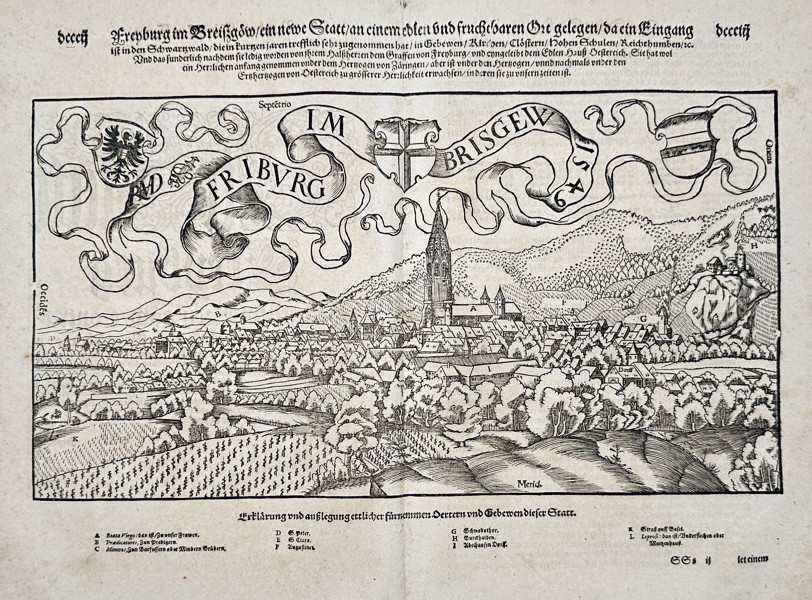 dcccij Freyburg im Breißgöw/ ein newe Statt/ an einem edlen vnd fruchtbaren Ort gelegen/ da ein Eingang dcccciij
ist in den Schwartzwald/ die in kurtzen jaren trefflich sehr zugenommen hat/ in Gebewen/ Kirchen/ Clöstern/ Hohen Schulen/ Reichthumben/ ꝛc.
Vnd das sunderlich nachdem sie ledig worden von ihrem Halßherren dem Graffen von Freyburg/ vnd eyngeleibt dem Edlen Hauß Oestereich. Sie hat wol
ein Herrlichen anfang genommen vnder dem Hertzogen von Zäringen/ aber ist vnder den Hertzogen/ vnnd nachmals vnder den
Ertzhertzogen von Oestereich zu grösserer Herrlichkeit erwachsen/ in deren sie zu vnsern zeiten ist.
Septētrio
FRIBVRG IM BRISGEW 1549
RMD
Oriens
Occidēs
A
B
F
G
H
K
Dorff
Merid.
Erklärung vnd außlegung ettlicher fürnemmen Oertern vnd Gebewen dieser Statt.
A Beata Virgo: das ist/ Zu vnser Frawen.
B Praedicatores, Zun Predigern.
C Minores, Zun Barfussern oder Mindern Brüdern.
D S. Peter.
E S. Clara.
F Augustiner.
G Schwobsthor.
H Burckhalden.
I Adelhausen Dorff.
K Straß auff Basel.
L Leprosi: das ist/ Vndersiechen oder
Maltzenhauß.
SSs ij let einem